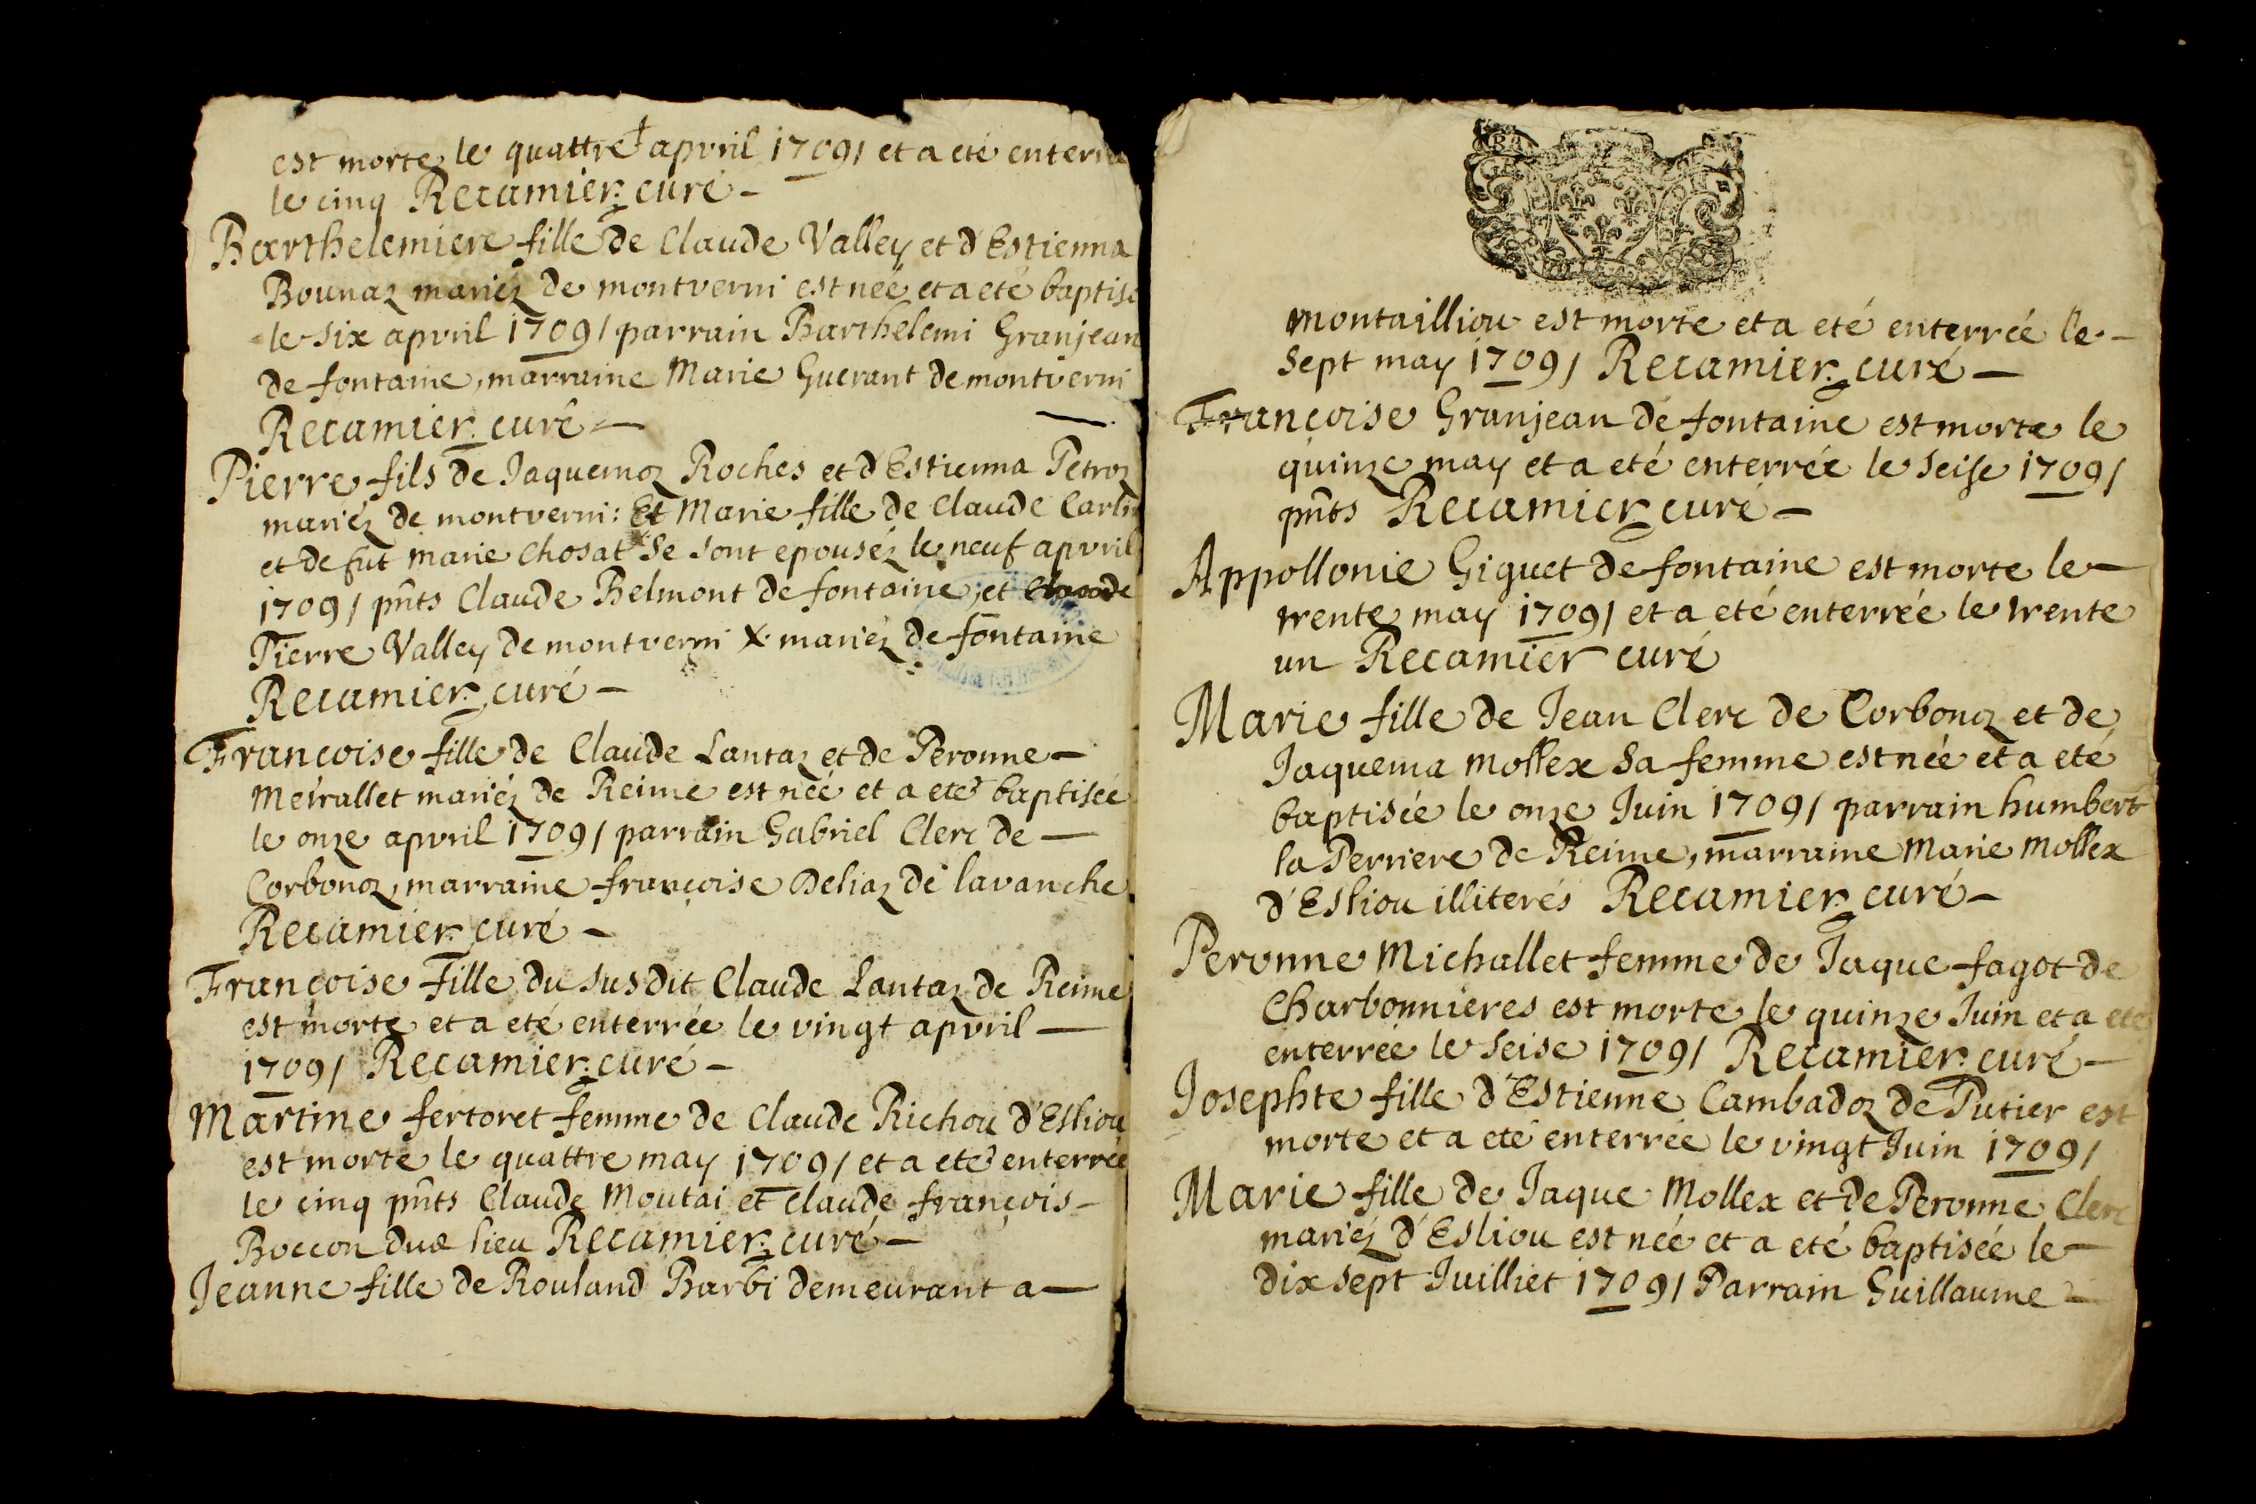 est morte le quattre apvril 1709/ et a eté enterré
le cinq Recamier curé –
Barthelemiere fille de Claude Valley et d'Estienna
Bounaz mariéz de montverni est née et a eté baptisé
le six apvril 1709/ parrain Barthelemi Granjean
de fontaine, marraine Marie Guerant de montverni
Recamier curé –
Pierre fils de Jaquemoz Roches et d'Estienna Petroz
mariéz de montverni : Et Marie fille de Claude
et de fut marie Chosat Se sont epouséz le neuf apvril
1709/ pn̄ts Claude Belmont de fontaine, et
Pierre Valley de montverni X mariéz de fontaine
Recamier curé –
Françoise fille de Claude Lantaz et de Peronne –
Meirallet mariéz de Reime est née et a eté baptisée
le onze apvril 1709/ parrain Gabriel Clerc de –
Corbonoz, marraine françoise Deliaz de lavanche
Recamier curé –
Françoise fille du susdit Claude Lantaz de Reime
est morte et a eté enterrée le vingt apvril –
1709/ Recamier curé –
Martine fertoret femme de Claude Richou d'Esliou
est morte le quattre may 1709/ et a eté enterrée
le cinq pn̄ts Claude Moutai et Claude françois –
Boccon dud lieu Recamier curé –
Jeanne fille de Rouland Barbi demeurant a –
montailliou est morte et a eté enterrée le –
sept may 1709/ Recamier curé –
Françoise Granjean de fontaine est morte le
quinze may et a eté enterrée le seise 1709/
pn̄ts Recamier curé –
Appollonie Giguet de fontaine est morte le –
trente may 1709/ et a eté enterrée le trente
un Recamier curé
Marie fille de Jean Clerc de Corbonoz et de
Jaquema Mollex sa femme est née et a eté
baptisée le onze Juin 1709/ parrain humbert
la Perriere de Reime, marraine Marie Mollex
d'Esliou illiterés Recamier curé –
Peronne Michallet femme de Jaque fagot de
Charbonnieres est morte le quinze Juin et a eté
enterrée le seise 1709/ Recamier curé –
Josephte fille d'Estienne Cambadoz de Putier est
morte et a eté enterrée le vingt Juin 1709/
Marie fille de Jaque Mollex et de Peronne Clerc
mariéz d'Esliou est née et a eté baptisée le –
dix sept Juilliet 1709/ Parrain Guillaume –